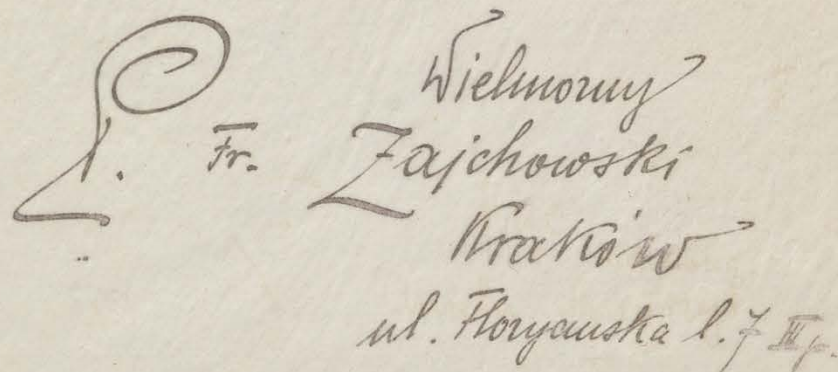 Wielmożny
P. Fr. Zajchowski
Kraków
ul. Floryańska l. 7 III p.